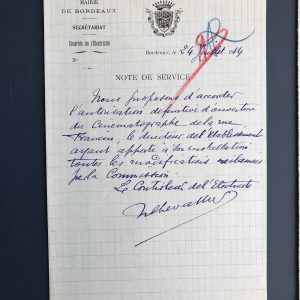 MAIRIE
DE BORDEAUX
SECRÉTARIAT
Contrôle de l'Electricité
N°
Bordeaux, le 24 Juillet 19
NOTE DE SERVICE
Nous proposons d'accorder
l'autorisation définitive d'ouverture
du Cinématographe de la rue
Francin, le directeur de l'Etablissement
ayant apporté à son installation
toutes les modifications réclamées
par la Commission.
Le Contrôleur de l'Electricité